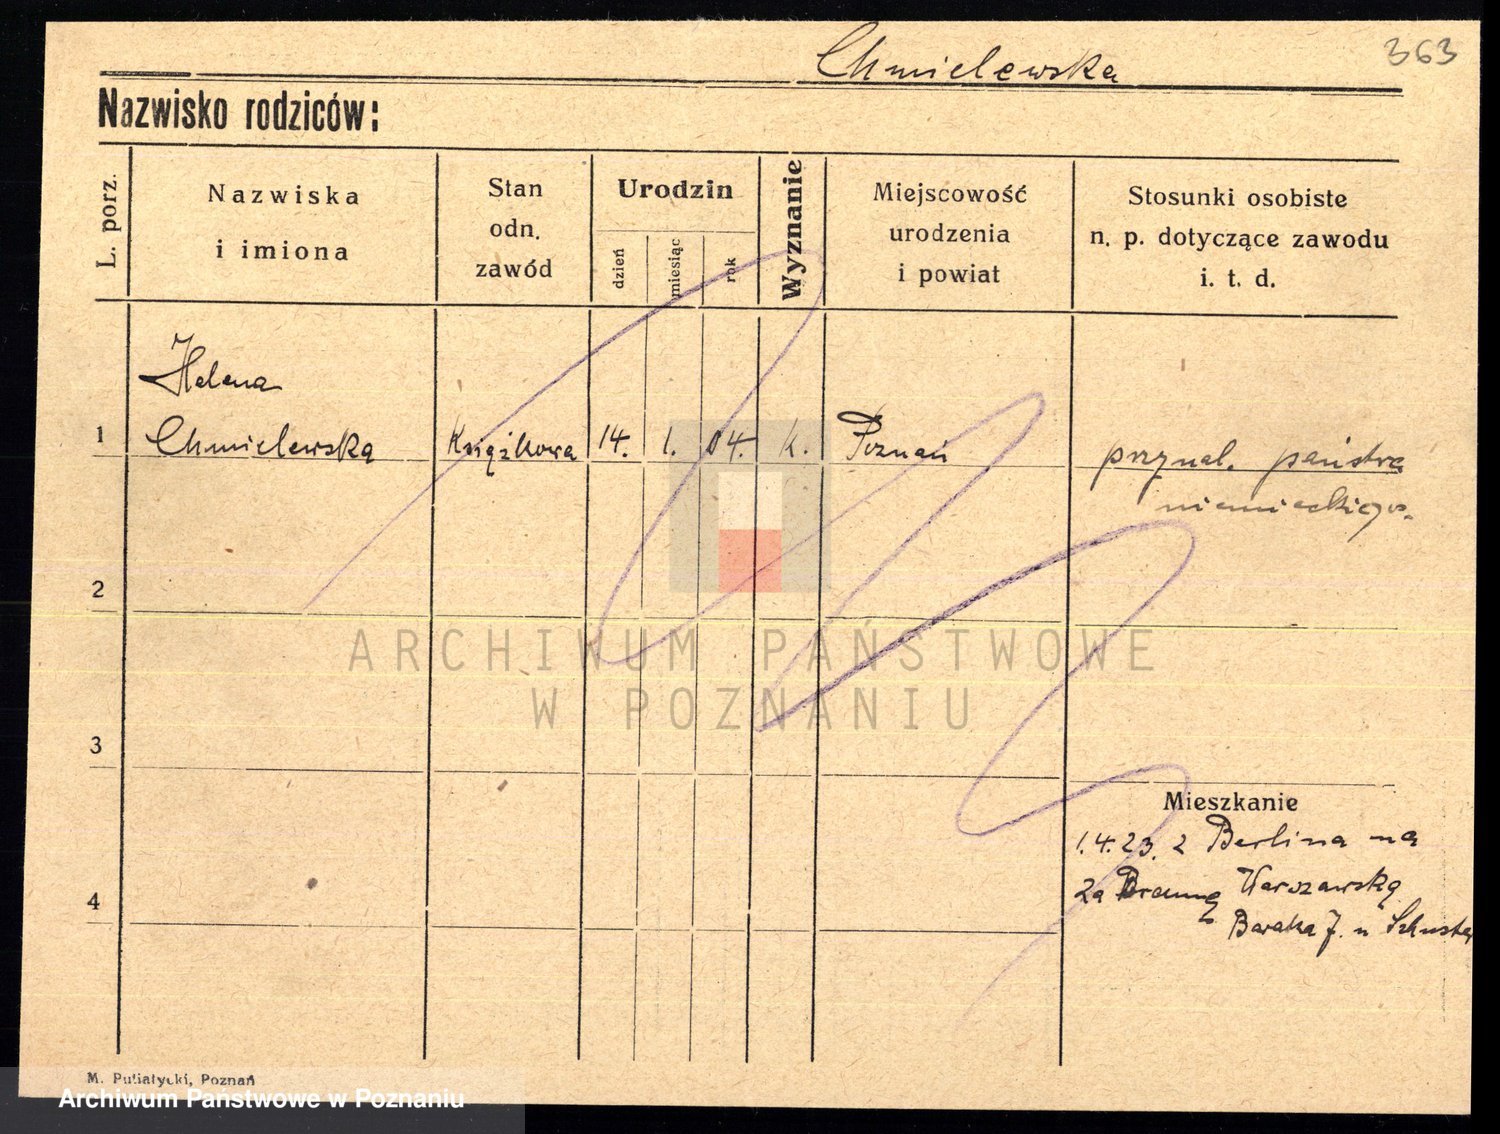 363
Chmielewska
Nazwisko rodziców:
L. porz.
Nazwiska
i imiona
Stan
odn.
zawód
Urodzin
dzień
miesiąc
rok
Wyznanie
Miejscowość
urodzenia
i powiat
Stosunki osobiste
n. p. dotyczące zawodu
i. t. d.
Helena
1 Chmielewska Książkowa 14. 1. 04. k. Poznań przynal. państwa
niemieckiego.
2
ARCHIWUM PAŃSTWOWE
W POZNANIU
3
Mieszkanie
1.4.23. z Berlina na
za Bramą Warszawską
4
Baraka 7. u
M. Putiatycki, Poznań
Archiwum Państwowe w Poznaniu